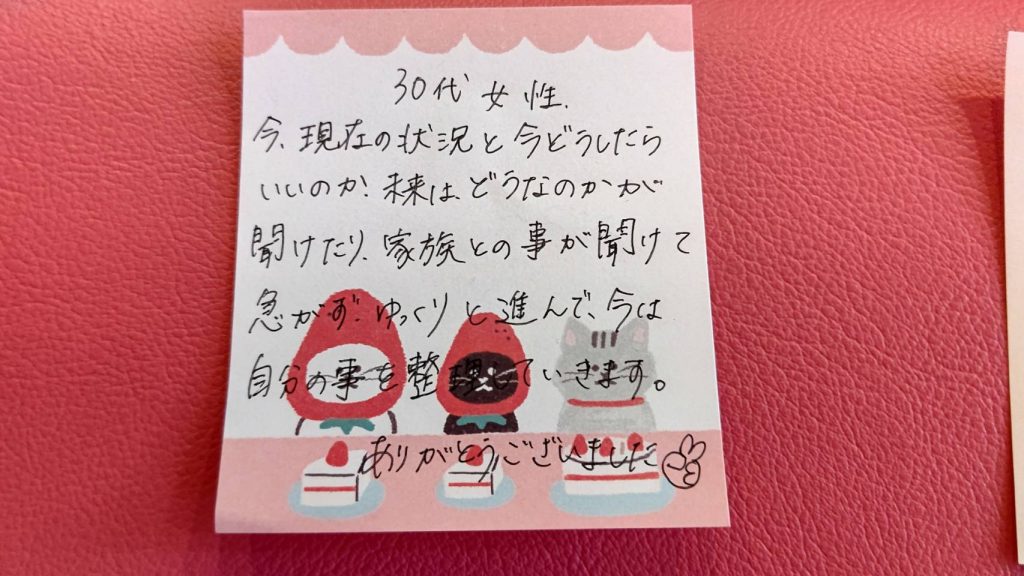 30代 女性.
今、現在の状況と今どうしたら
いいのか、未来はどうなのかが
聞けたり、家族との事が聞けて
急がず、ゆっくりと進んで、今は
自分の事を整理していきます。
ありがとうございました